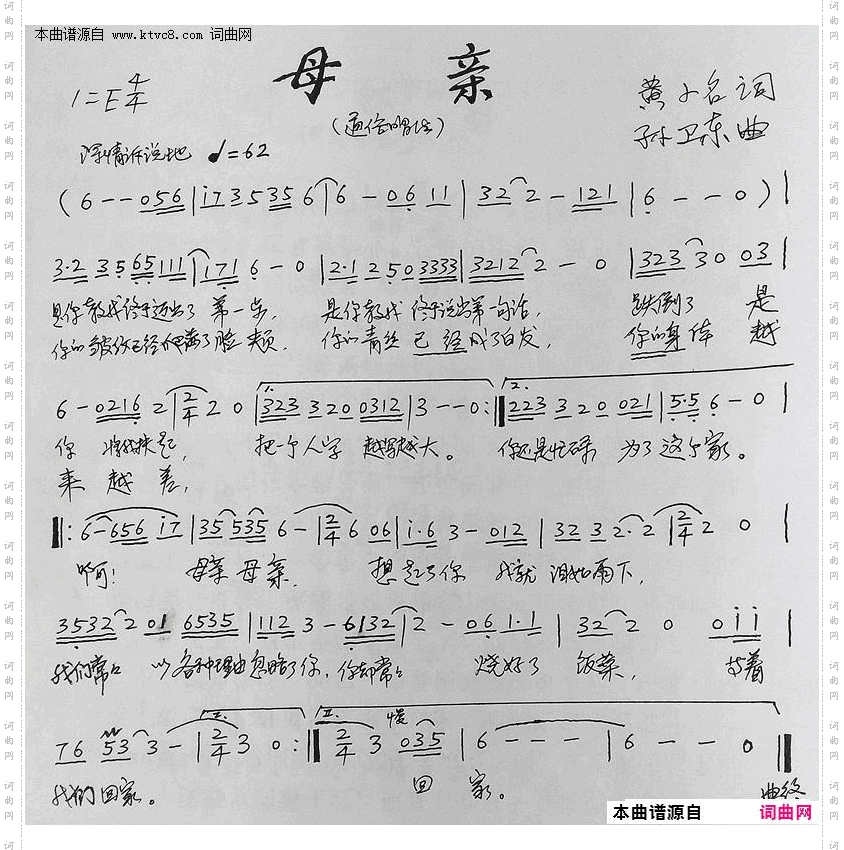 本曲谱源自 www.ktvc8.com 词曲网
母 亲
1=E 4/4
(通俗唱法)
黄小名词
孙卫东曲
深情诉说地 ♩=62
(6 - - 056 | i7 35 35 6 | 6 - 06 11 | 32 2 - 121 | 6 - - 0) |
3·2 35 65 111 | 171 6 - 0 | 2·1 25 0 3333 | 3212 2 - 0 | 323 30 03 |
是你教我终于迈出了 第一步, 是你教我 终于说出第一句话, 跌倒了 是
你的皱纹已经爬满了脸颊, 你的青丝 已经成了白发, 你的身体 越
6 - 0216 2 | 2/4 2 0 | 1. 323 320 0312 | 3 - - 0 :| 2. 223 320 021 | 5·5 6 - 0 |
你 将我扶起, 把一个人字 越写越大。 你还是忙碌 为了这个家。
来 越 差,
|: 6 - 656 i7 | 35 535 6 - | 2/4 6 06 | i·6 3 - 012 | 32 32·2 | 2/4 2 0 |
啊! 母亲 母亲, 想起了你 我就 泪如雨下,
3532 2 01 6535 | 112 3 - 6132 | 2 - 06 1·1 | 32 2 0 0ii |
我们常常 以各种理由忽略了你, 你却常常 烧好了 饭菜, 等着
76 53 3 - | I. 2/4 3 0 :| II. 2/4 3 慢 035 | 6 - - - | 6 - - 0 ‖
我们回家。 回 家。 曲终
本曲谱源自 词曲网